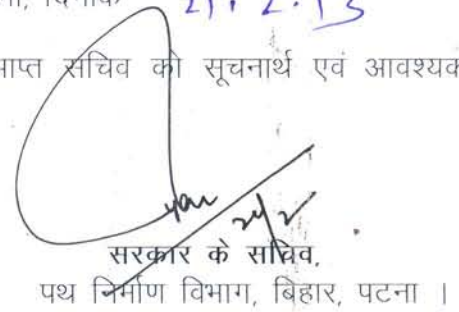 दिनांक 21.2.13
सचिव को सूचनार्थ एवं आवश्यक
21/2
सरकार के सचिव,
पथ निर्माण विभाग, बिहार, पटना ।